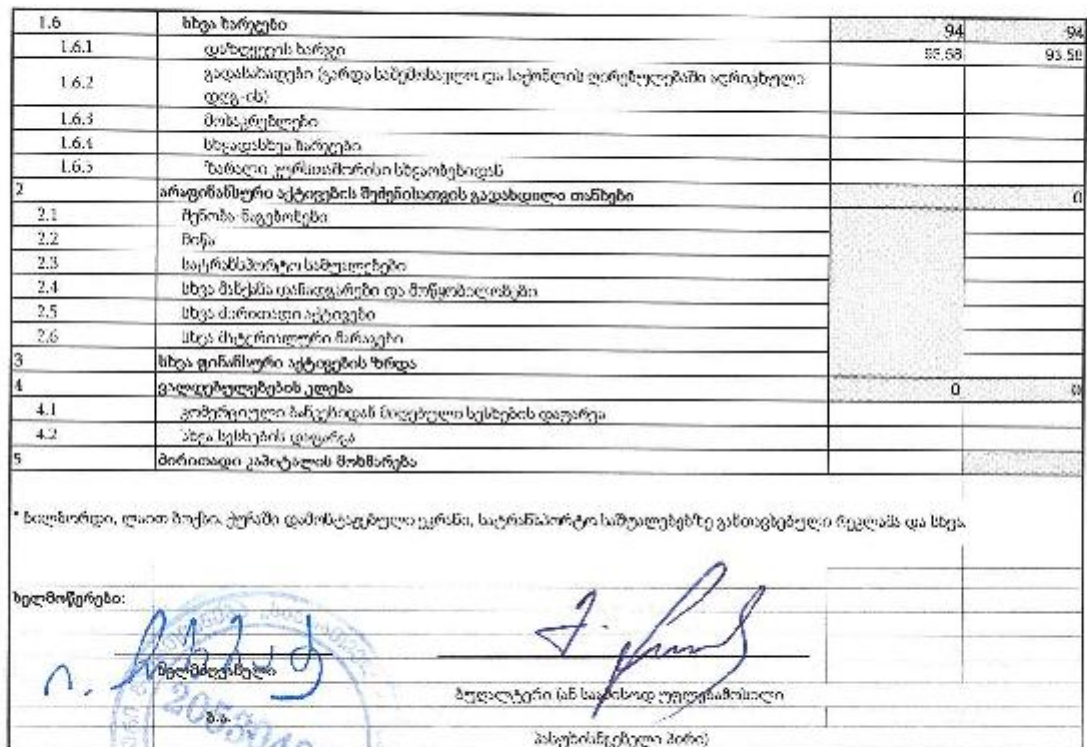 1.6 სხვა ხარჯები 94 94
1.6.1 დაზღვევის ხარჯი 93.58 93.58
1.6.2 გადასახადები (გარდა საშემოსავლო და საქონლის ღირებულებაში აღრიცხული
დღგ-ის)
1.6.3 მოსაკრებლები
1.6.4 სხვადასხვა ხარჯები
1.6.5 ზარალი კურსთაშორისი სხვაობებიდან
2 არაფინანსური აქტივების შეძენისათვის გადახდილი თანხები 0
2.1 შენობა-ნაგებობები
2.2 მიწა
2.3 სატრანსპორტო საშუალებები
2.4 სხვა მანქანა დანადგარები და მოწყობილობები
2.5 სხვა ძირითადი აქტივები
2.6 სხვა მატერიალური მარაგები
3 სხვა ფინანსური აქტივების ზრდა
4 ვალდებულებების კლება 0 0
4.1 კომერციული ბანკებიდან მიღებული სესხების დაფარვა
4.2 სხვა სესხების დაფარვა
5 ძირითადი კაპიტალის მოხმარება
* ბილბორდი, ლაით ბოქსი, ქუჩაში დამონტაჟებული ეკრანი, სატრანსპორტო საშუალებებზე განთავსებული რეკლამა და სხვა.
ხელმოწერები:
ხელმძღვანელი
ბუღალტერი (ან საამისოდ უფლებამოსილი
ბ.ა.
პასუხისმგებელი პირი)